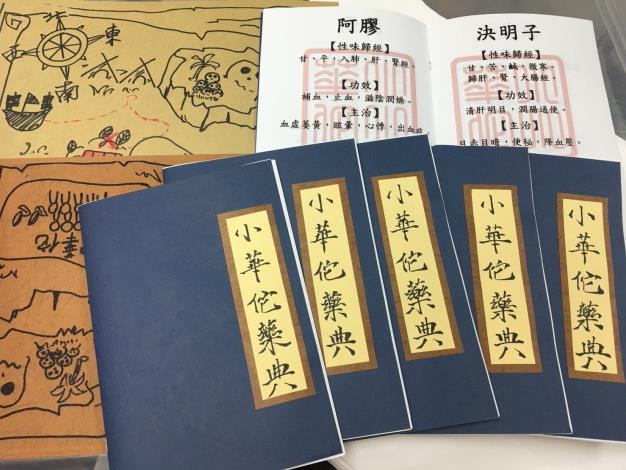 東
西
南
J.C.
華佗
阿膠
【性味歸經】
甘、平，入肺、肝、腎經。
【功效】
補血，止血，滋陰潤燥。
【主治】
血虛萎黃，眩暈，心悸，出血
決明子
【性味歸經】
甘、苦、鹹，微寒。
歸肝、腎、大腸經。
【功效】
清肝明目，潤腸通便。
【主治】
目赤目暗，便秘，降血壓。
小華佗藥典
小華佗藥典
小華佗藥典
小華佗藥典
小華佗藥典